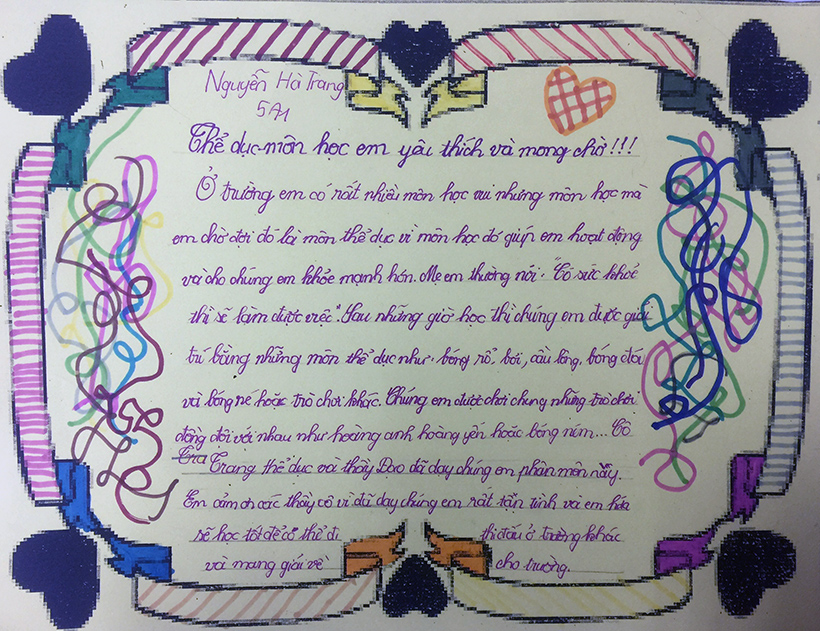 Nguyễn Hà Trang
5A1
Thể dục-môn học em yêu thích và mong chờ!!!
Ở trường em có rất nhiều môn học vui nhưng môn học mà
em chờ đợi đó là môn thể dục vì môn học đó giúp em hoạt động
và cho chúng em khỏe mạnh hơn. Mẹ em thường nói: "Có sức khoẻ
thì sẽ làm được việc". Sau những giờ học thì chúng em được giải
trí bằng những môn thể dục như: bóng rổ, bơi, cầu lông, bóng đá
và bóng né hoặc trò chơi khác. Chúng em được chơi chung những trò chơi
đồng đội với nhau như hoàng anh hoàng yến hoặc bóng ném... Cô
Tra Trang thể dục và thầy Đạo đã dạy chúng em phân môn này.
Em cảm ơn các thầy cô vì đã dạy chúng em rất tận tình và em hứa
sẽ học tốt để có thể đi thi đấu ở trường khác
và mang giải về cho trường.